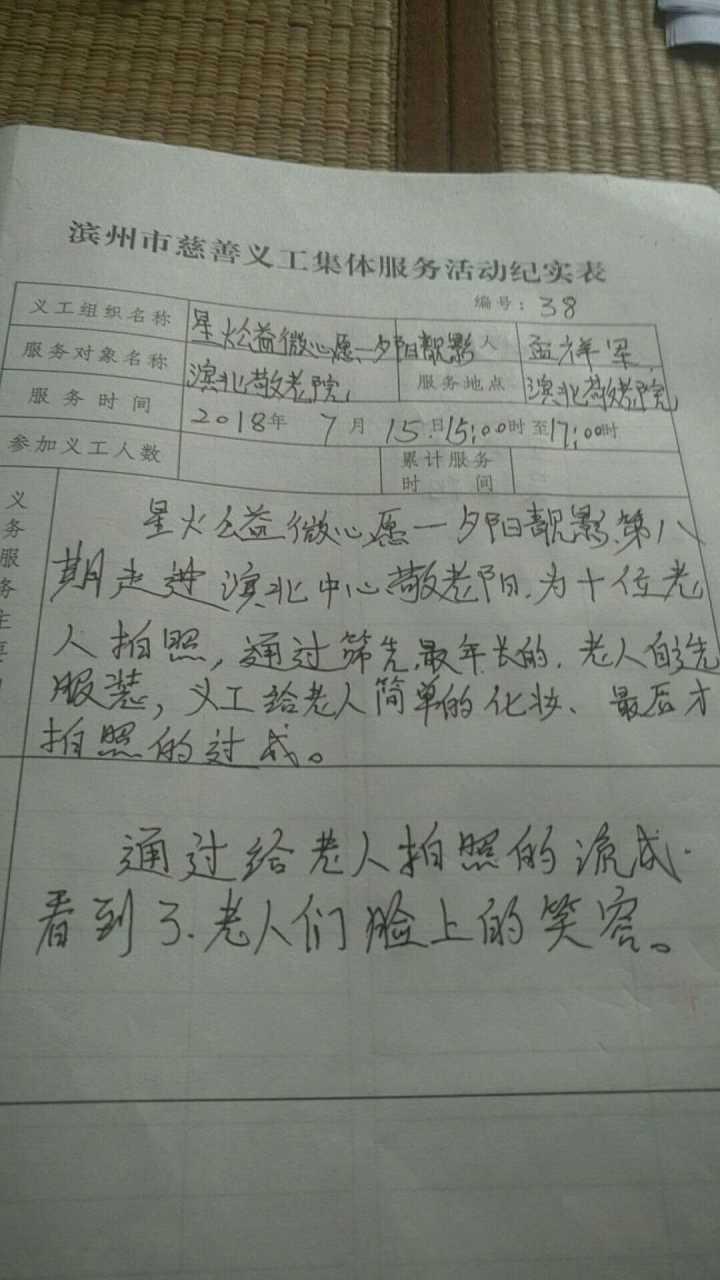 滨州市慈善义工集体服务活动纪实表
编号：38
义工组织名称 星火公益微心愿一夕阳靓影 人 孟祥军
服务对象名称 滨北敬老院 服务地点 滨北敬老院
服务时间 2018年 7月 15日15:00时至17:00时
参加义工人数 累计服务时间
义务服务主要
星火公益微心愿一夕阳靓影.第八
期走进滨北中心敬老阳.为十位老
人拍照，通过筛先.最年长的.老人自选
服装，义工给老人简单的化妆、最后才
拍照的过成。
通过给老人拍照的流成.
看到了.老人们脸上的笑容。